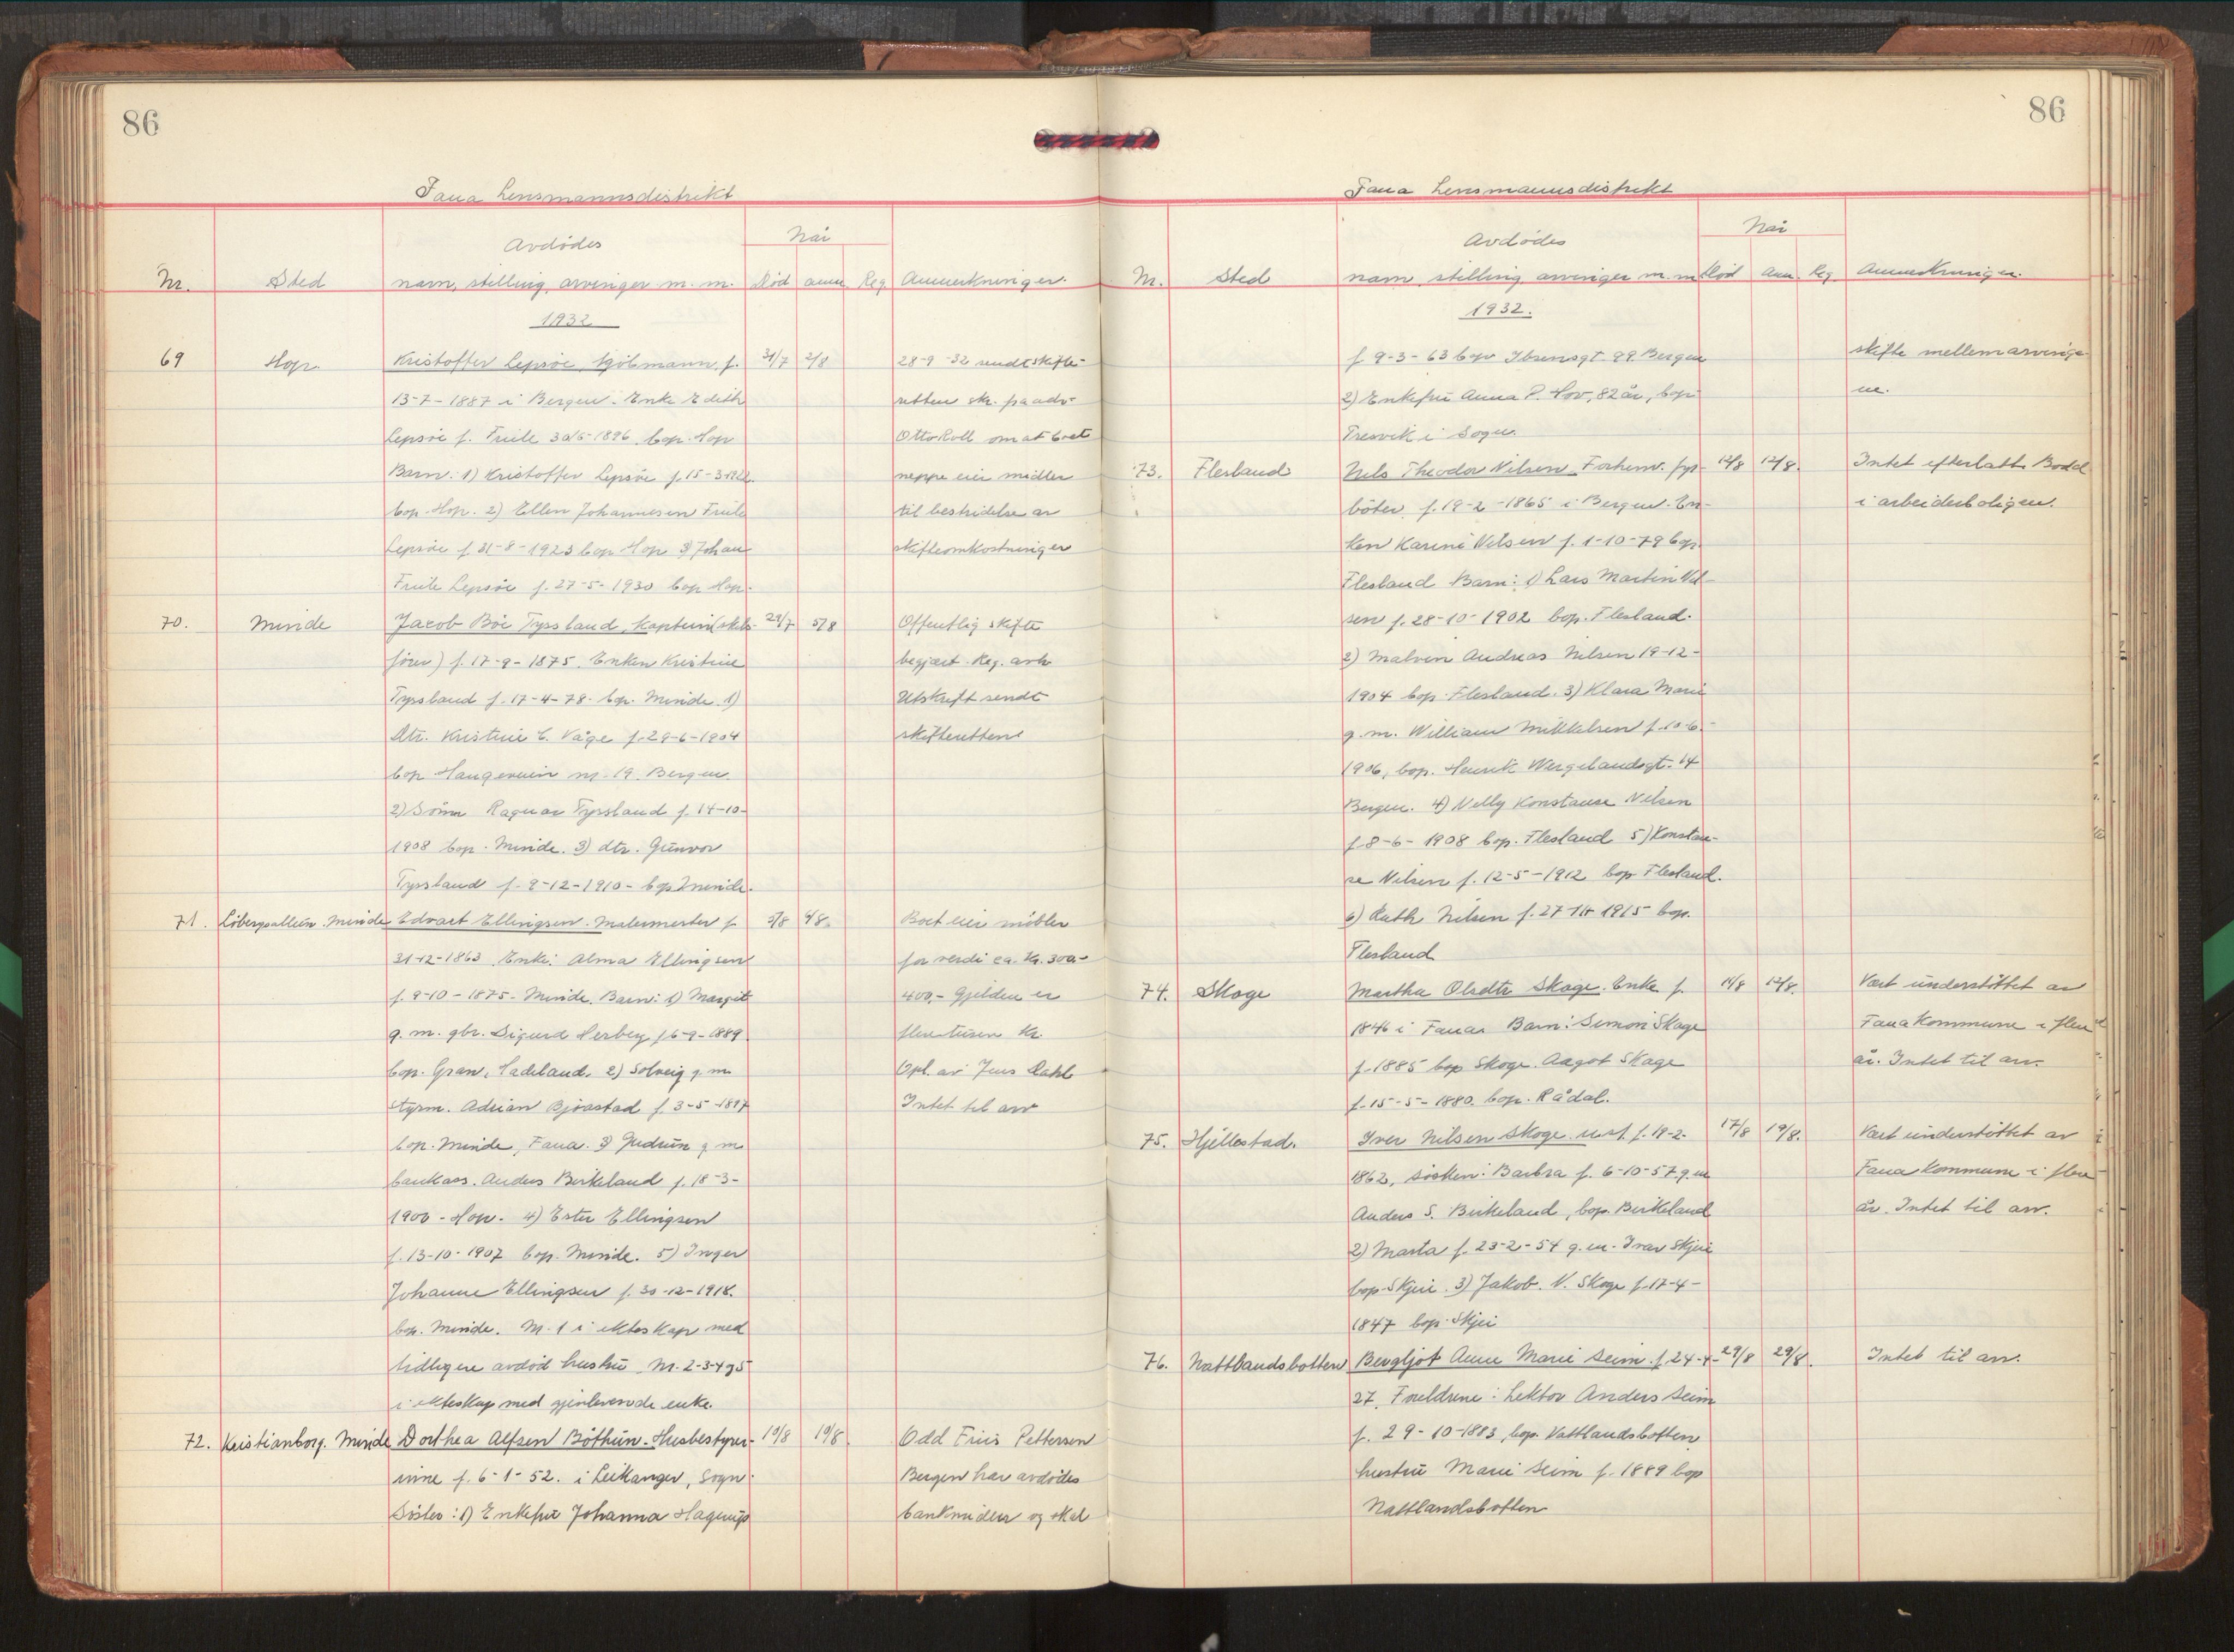 86
Fana Lensmannsdistrikt
Når
Avdødes
Nr. Sted navn, stilling, arvinger m. m. Död anm. Reg. Anmerkninger.
1932
69 Hop. Kristoffer Lepsöe, Sjöbmann, f. 31/7 2/8 28-9-32 sendt skifte-
13-7-1887 i Bergen. Enke Edith retten skr. fra adv.
Lepsöe f. Friele 30/5-1896 bop. Hop Otto Roll om at boet
Barn: 1) Kristoffer Lepsöe f. 15-3-1922. neppe eier midler
bop. Hop. 2) Ellen Johannesen Friele til bestridelse av
Lepsöe f. 31-8-1923 bop Hop 3) Johan skifteomkostninger
Friele Lepsöe f. 27-5-1930 bop Hop.
70. Minde Jacob Böe Tyssland, Kaptein (skibs- 29/7 5/8 Offentlig skifte
förer) f. 17-9-1875. Enken Kristine begjært. Reg. avh
Tyssland f. 17-4-78. bop. Minde. 1) Utskrift sendt
Dtr. Kristine C. Våge f. 29-6-1904 skifteretten
bop Haugeveien nr. 19. Bergen
2) Sönn Ragnar Tyssland f. 14-10-
1908 bop. Minde. 3) dtr. Gunvor
Tyssland f. 9-12-1910- bop Minde.
71. Löbergsalleen. Minde Edvart Ellingsen. Malermester f. 3/8 4/8. Boet eier möbler
31-12-1863. Enke: Alma Ellingsen for verdi ca. kr. 300-
f. 9-10-1875- Minde. Barn: 1) Margit 400.- Gjelden er
g. m. gbr. Sigurd Herbey f. 6-9-1889 flere tusen kr.
bop. Gran, Hadeland. 2) Solveig g. m. Opl. av Jens Dahl
styrm. Adrian Bjöastad f. 3-5-1897 Intet til arv
bop. Minde, Fana. 3) Gudrun g m
bankass. Anders Birkeland f. 18-3-
1900 - Hop. 4) Ester Ellingsen
f. 13-10-1907 bop. Minde. 5) Inger
Johanne Ellingsen f. 30-12-1918.
bop. Minde. Nr. 1 i ekteskap med
tidligere avdöd hustru. Nr. 2-3-4 og 5
i ekteskap med gjenlevende enke.
72. Kristianborg. Minde Dorthea Alfsen Böthun. Husbestyrer- 10/8 10/8. Odd Friis Pettersen
inne f. 6-1-52. i Leikanger, Sogn. Bergen har avdödes
Söster: 1) Enkefru Johanna Hagerup bankmidler og skal
86
Fana Lensmannsdistrikt
Når
Avdødes
Nr. Sted navn, stilling, arvinger m. m. Död Anm. Reg. Anmerkninger.
1932.
f 9-3-63 bop Ibsensgt 99 Bergen skifte mellem arvinge-
2) Enkefru Anna P. Hov, 82 år, bop ne.
Fresvik i Sogn.
73. Flesland Nils Theodor Nilsen. Forhenv. fyr- 12/8 12/8. Intet efterlatt. Bodd
böter, f. 19-2-1865 i Bergen. En- i arbeiderboligen.
ken Karine Nilsen f. 1-10-79 bop.
Flesland Barn: 1) Lars Martin Nil-
sen f. 28-10-1902 bop. Flesland.
2) Malvin Andreas Nilsen 19-12-
1904 bop. Flesland. 3) Klara Marie
g. m. William Mikkelsen f. 10-6-
1906, bop. Henrik Wergelandsgt. 14
Bergen. 4) Nelly Konstanse Nilsen
f. 8-6-1908 bop. Flesland 5) Konstan-
se Nilsen f. 12-5-1912 bop Flesland.
6) Ruth Nilsen f. 27-11-1915 bop.
Flesland
74. Skoge Martha Olsdtr Skoge. Enke f. 11/8 12/8. Vært understöttet av
1846 i Fana. Barn: Simon Skage Fana Kommune i flere
f. 1885 bop Skoge. Aagot Skage år. Intet til arv.
f. 15-5-1880. bop. Rådal.
75. Hjellestad. Iver Nilsen Skoge. u. f. f. 19-2- 17/8 19/8. Vært understöttet av
1862, sösken: Barbra f. 6-10-57 g. m Fana Kommune i flere
Anders S. Birkeland, bop. Birkeland år. Intet til arv.
2) Marta f. 23-2-54 g. m. Ivar Skjei
bop. Skjei. 3) Jakob. N. Skoge f. 17-4-
1847 bop. Skjei
76. Nattlandsbotten Bergljot Anne Marie Seim. f. 24-4- 29/8 29/8. Intet til arv.
27. Foreldrene: Lektor Anders Seim
f. 29-10-1883, bop. Nattlandsbotten
hustru Marie Seim f. 1889 bop
Nattlandsbotten